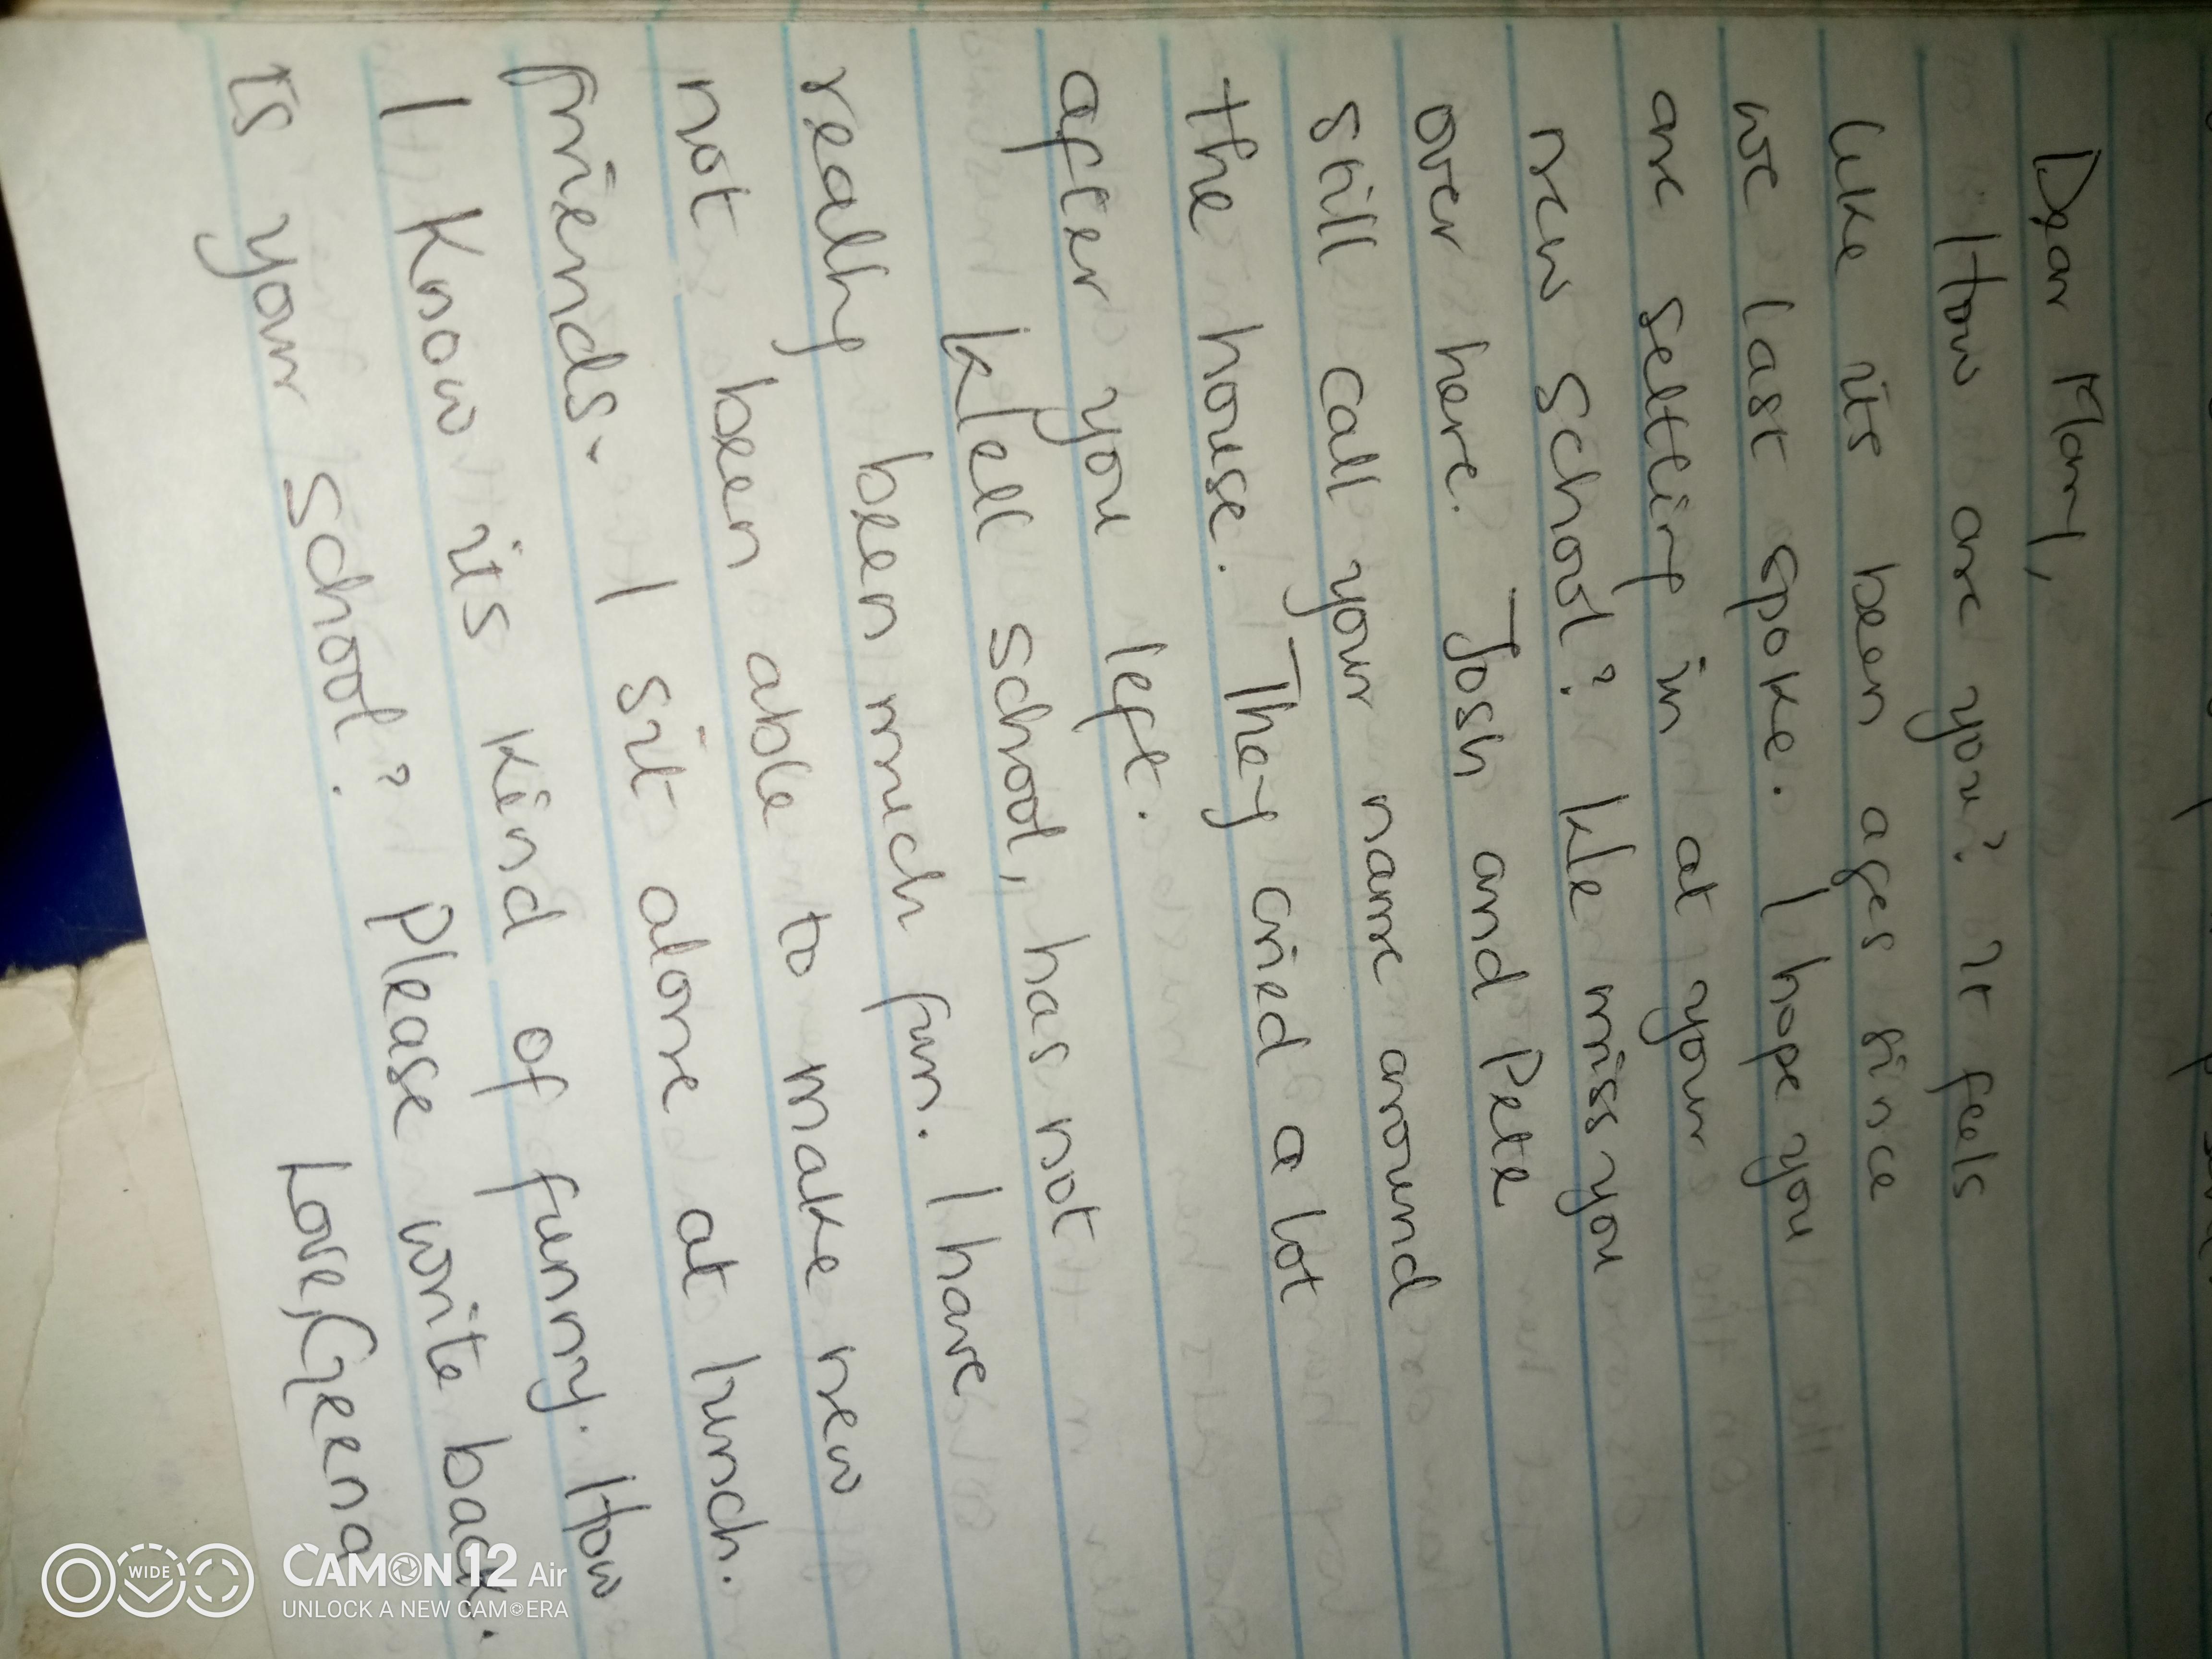 Dear Mary,
How are you? It feels
like its been ages since
we last spoke. I hope you
are settling in at your
new school? We miss you
over here. Josh and Pete
still call your name around
the house. They cried a lot
after you left.
Well school, has not
really been much fun. I have
not been able to make new
friends. I sit alone at lunch.
I know its kind of funny. How
is your school? Please write back.
Love, Geena
WIDE
CAMON 12 Air
UNLOCK A NEW CAMERA